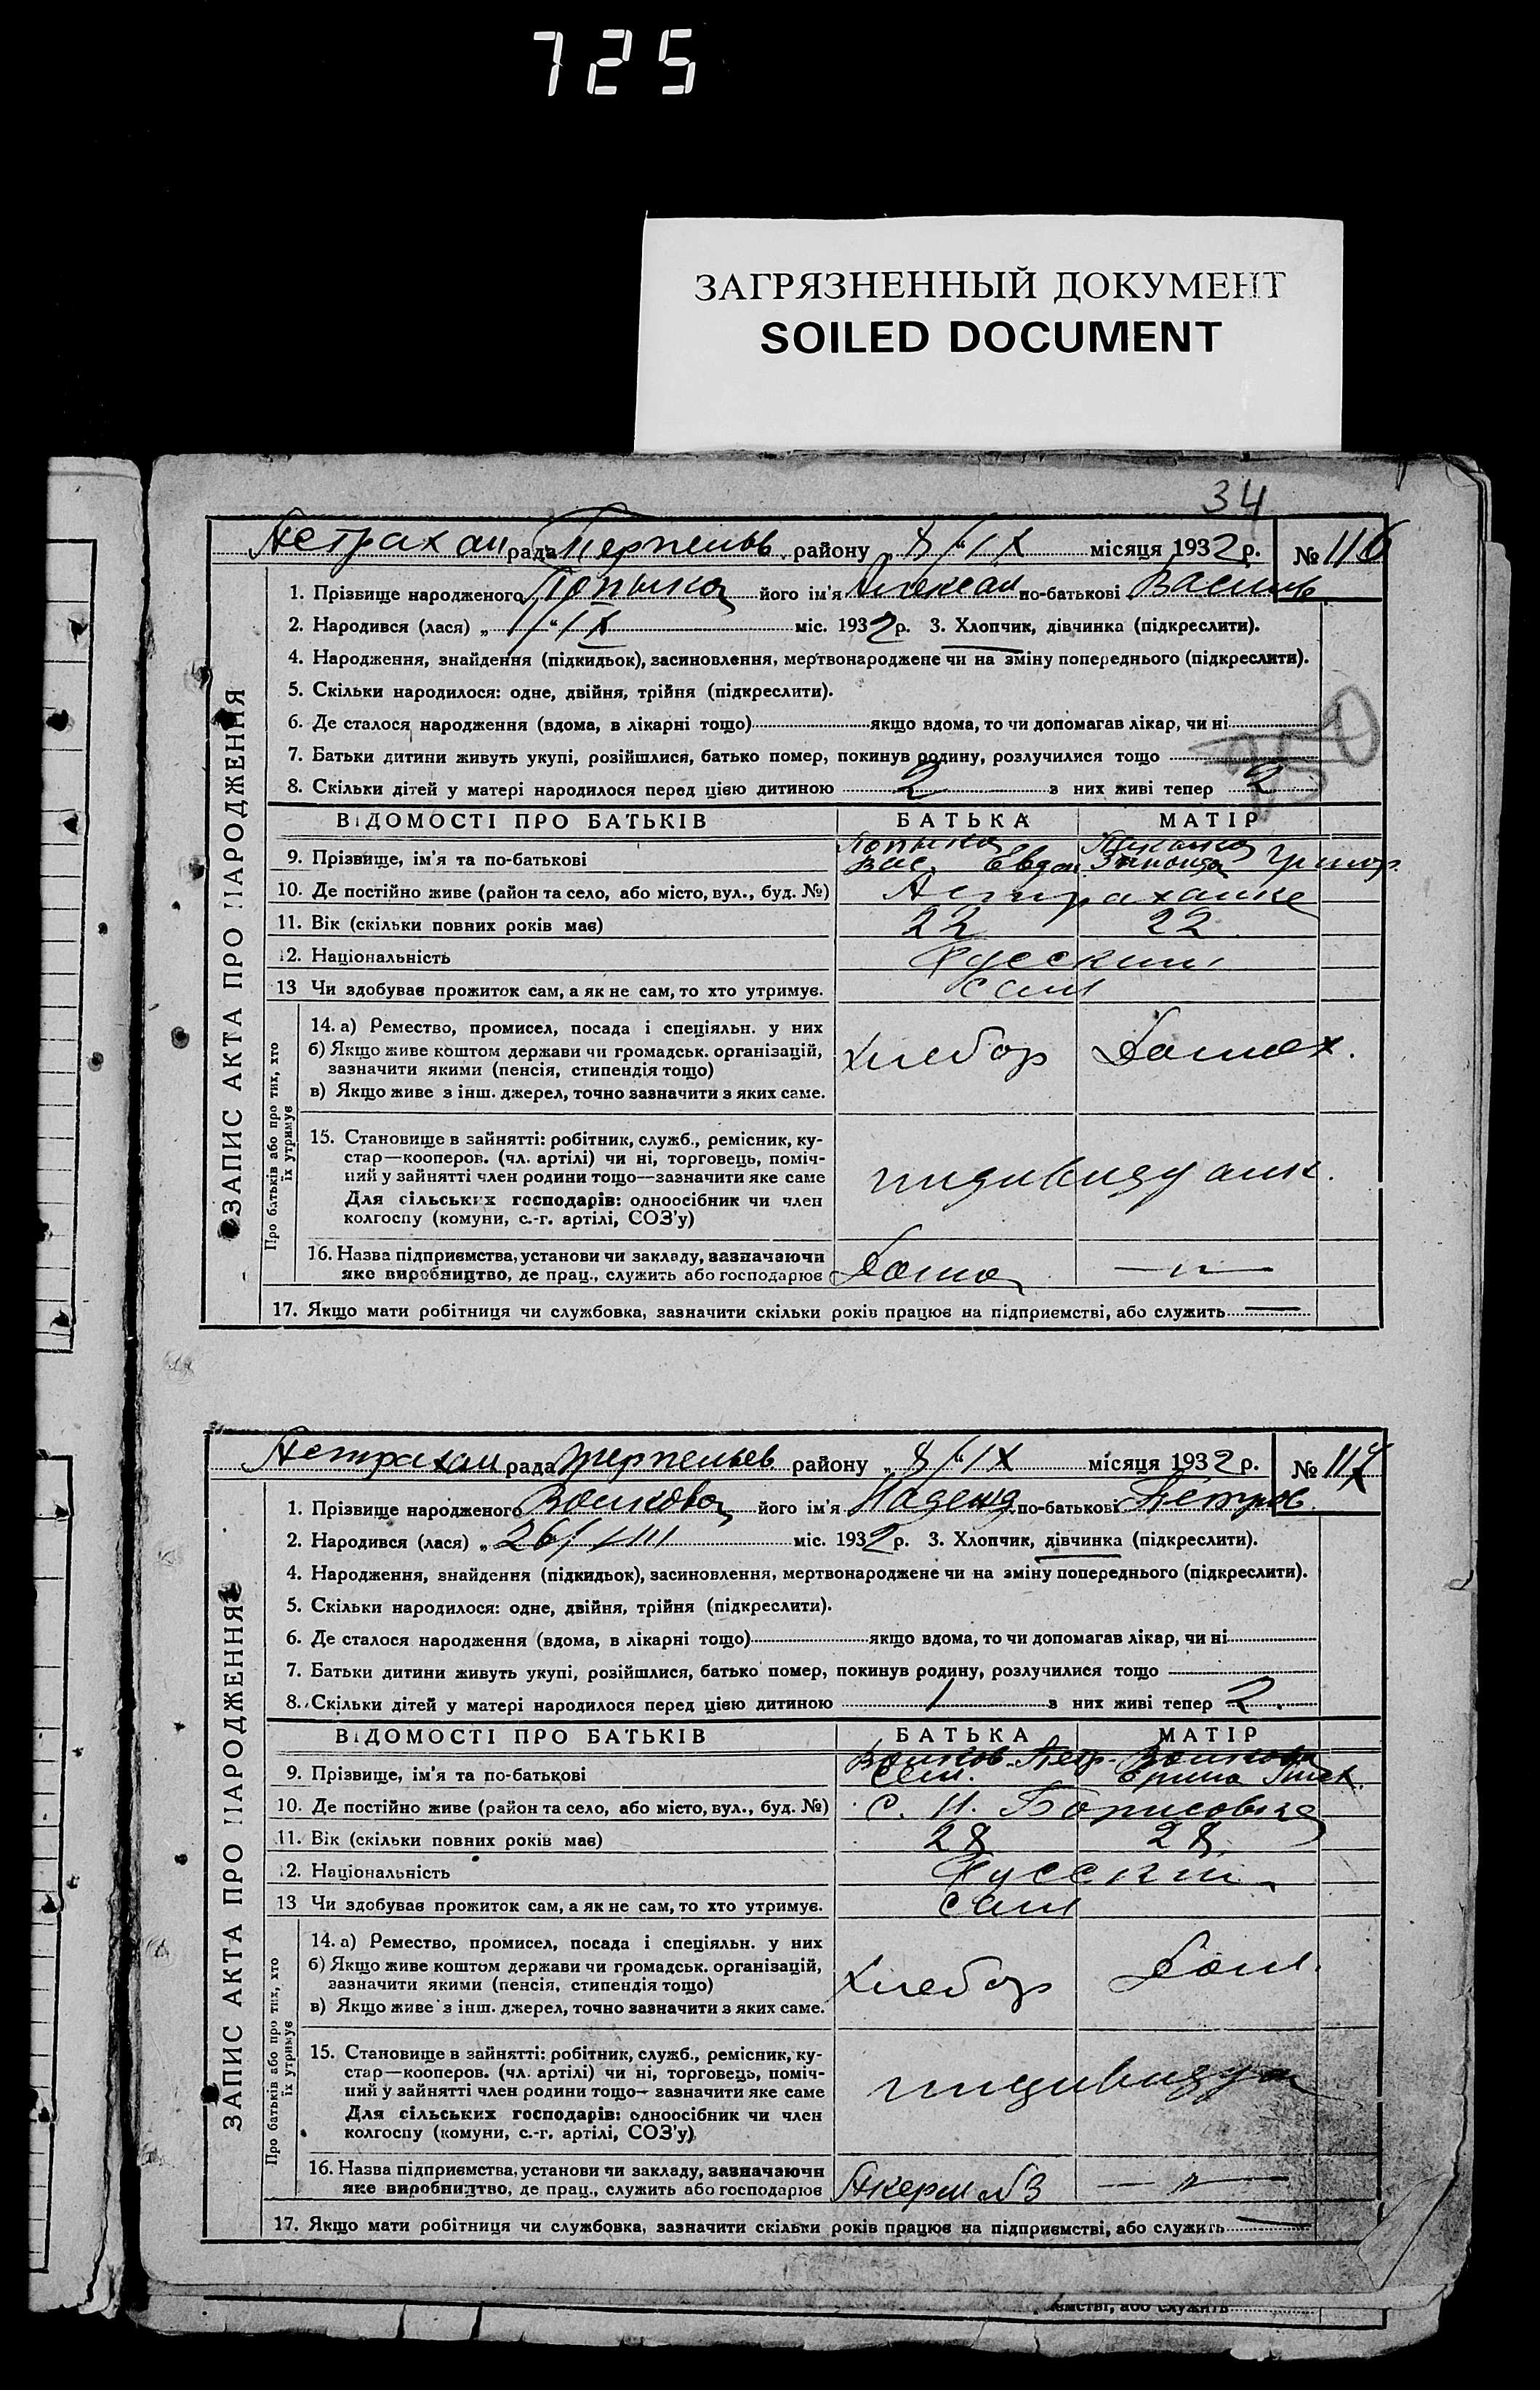 725
ЗАГРЯЗНЕННЫЙ ДОКУМЕНТ
SOILED DOCUMENT
34
Астрахан рада Терпеньев району „8/“ IX місяця 1932 р. № 116
ЗАПИС АКТА ПРО НАРОДЖЕННЯ
1. Прізвище народженого його ім'я Алексей по-батькові Василь
2. Народився (лася) „1/“ IX міс. 1932 р. 3. Хлопчик, дівчинка (підкреслити).
4. Народження, знайдення (підкидьок), засиновлення, мертвонароджене чи на зміну попереднього (підкреслити).
5. Скільки народилося: одне, двійня, трійня (підкреслити).
6. Де сталося народження (вдома, в лікарні тощо) якщо вдома, то чи допомагав лікар, чи ні
7. Батьки дитини живуть укупі, розійшлися, батько помер, покинув родину, розлучилися тощо
8. Скільки дітей у матері народилося перед цією дитиною 2 з них живі тепер 2
ВІДОМОСТІ ПРО БАТЬКІВ БАТЬКА МАТІР
9. Прізвище, ім'я та по-батькові Вас. Евдок. Зинаида Григор.
10. Де постійно живе (район та село, або місто, вул., буд. №) Астраханке
11. Вік (скільки повних років має) 22 22
12. Національність Русский
13 Чи здобуває прожиток сам, а як не сам, то хто утримує. сам
Про батьків або про тих, хто їх утримує
14. а) Ремество, промисел, посада і спеціяльн. у них
б) Якщо живе коштом держави чи громадськ. організацій,
зазначити якими (пенсія, стипендія тощо)
в) Якщо живе з інш. джерел, точно зазначити з яких саме.
Хлебор Домох.
15. Становище в зайнятті: робітник, служб., ремісник, ку-
стар—кооперов. (чл. артілі) чи ні, торговець, поміч-
ний у зайнятті член родини тощо—зазначити яке саме
Для сільських господарів: одноосібник чи член
колгоспу (комуни, с.-г. артілі, СОЗ'у)
индивидуалн.
16. Назва підприємства, установи чи закладу, зазначаючи
яке виробництво, де прац., служить або господарює Дома —"—
17. Якщо мати робітниця чи службовка, зазначити скільки років працює на підприємстві, або служить —
Астрахан рада Терпеньев району „8/“ IX місяця 1932 р. № 117
ЗАПИС АКТА ПРО НАРОДЖЕННЯ
1. Прізвище народженого Волкова його ім'я Надежд по-батькові Петров.
2. Народився (лася) „26/ VIII міс. 1932 р. 3. Хлопчик, дівчинка (підкреслити).
4. Народження, знайдення (підкидьок), засиновлення, мертвонароджене чи на зміну попереднього (підкреслити).
5. Скільки народилося: одне, двійня, трійня (підкреслити).
6. Де сталося народження (вдома, в лікарні тощо) якщо вдома, то чи допомагав лікар, чи ні
7. Батьки дитини живуть укупі, розійшлися, батько помер, покинув родину, розлучилися тощо
8. Скільки дітей у матері народилося перед цією дитиною 1 з них живі тепер 2
ВІДОМОСТІ ПРО БАТЬКІВ БАТЬКА МАТІР
Волков Петр Волкова
9. Прізвище, ім'я та по-батькові Сем.
10. Де постійно живе (район та село, або місто, вул., буд. №) с. Н. Борисовке
11. Вік (скільки повних років має) 28 28
12. Національність Русский
13 Чи здобуває прожиток сам, а як не сам, то хто утримує. сам
Про батьків або про тих, хто їх утримує
14. а) Ремество, промисел, посада і спеціяльн. у них
б) Якщо живе коштом держави чи громадськ. організацій,
зазначити якими (пенсія, стипендія тощо)
в) Якщо живе з інш. джерел, точно зазначити з яких саме.
Хлебор Дом.
15. Становище в зайнятті: робітник, служб., ремісник, ку-
стар—кооперов. (чл. артілі) чи ні, торговець, поміч-
ний у зайнятті член родини тощо— зазначити яке саме
Для сільських господарів: одноосібник чи член
колгоспу (комуни, с.-г. артілі, СОЗ'у)
индивидуал
16. Назва підприємства, установи чи закладу, зазначаючи
яке виробництво, де прац., служить або господарює Акерм №3 —"—
17. Якщо мати робітниця чи службовка, зазначити скільки років працює на підприємстві, або служить —
ємстві, або служить